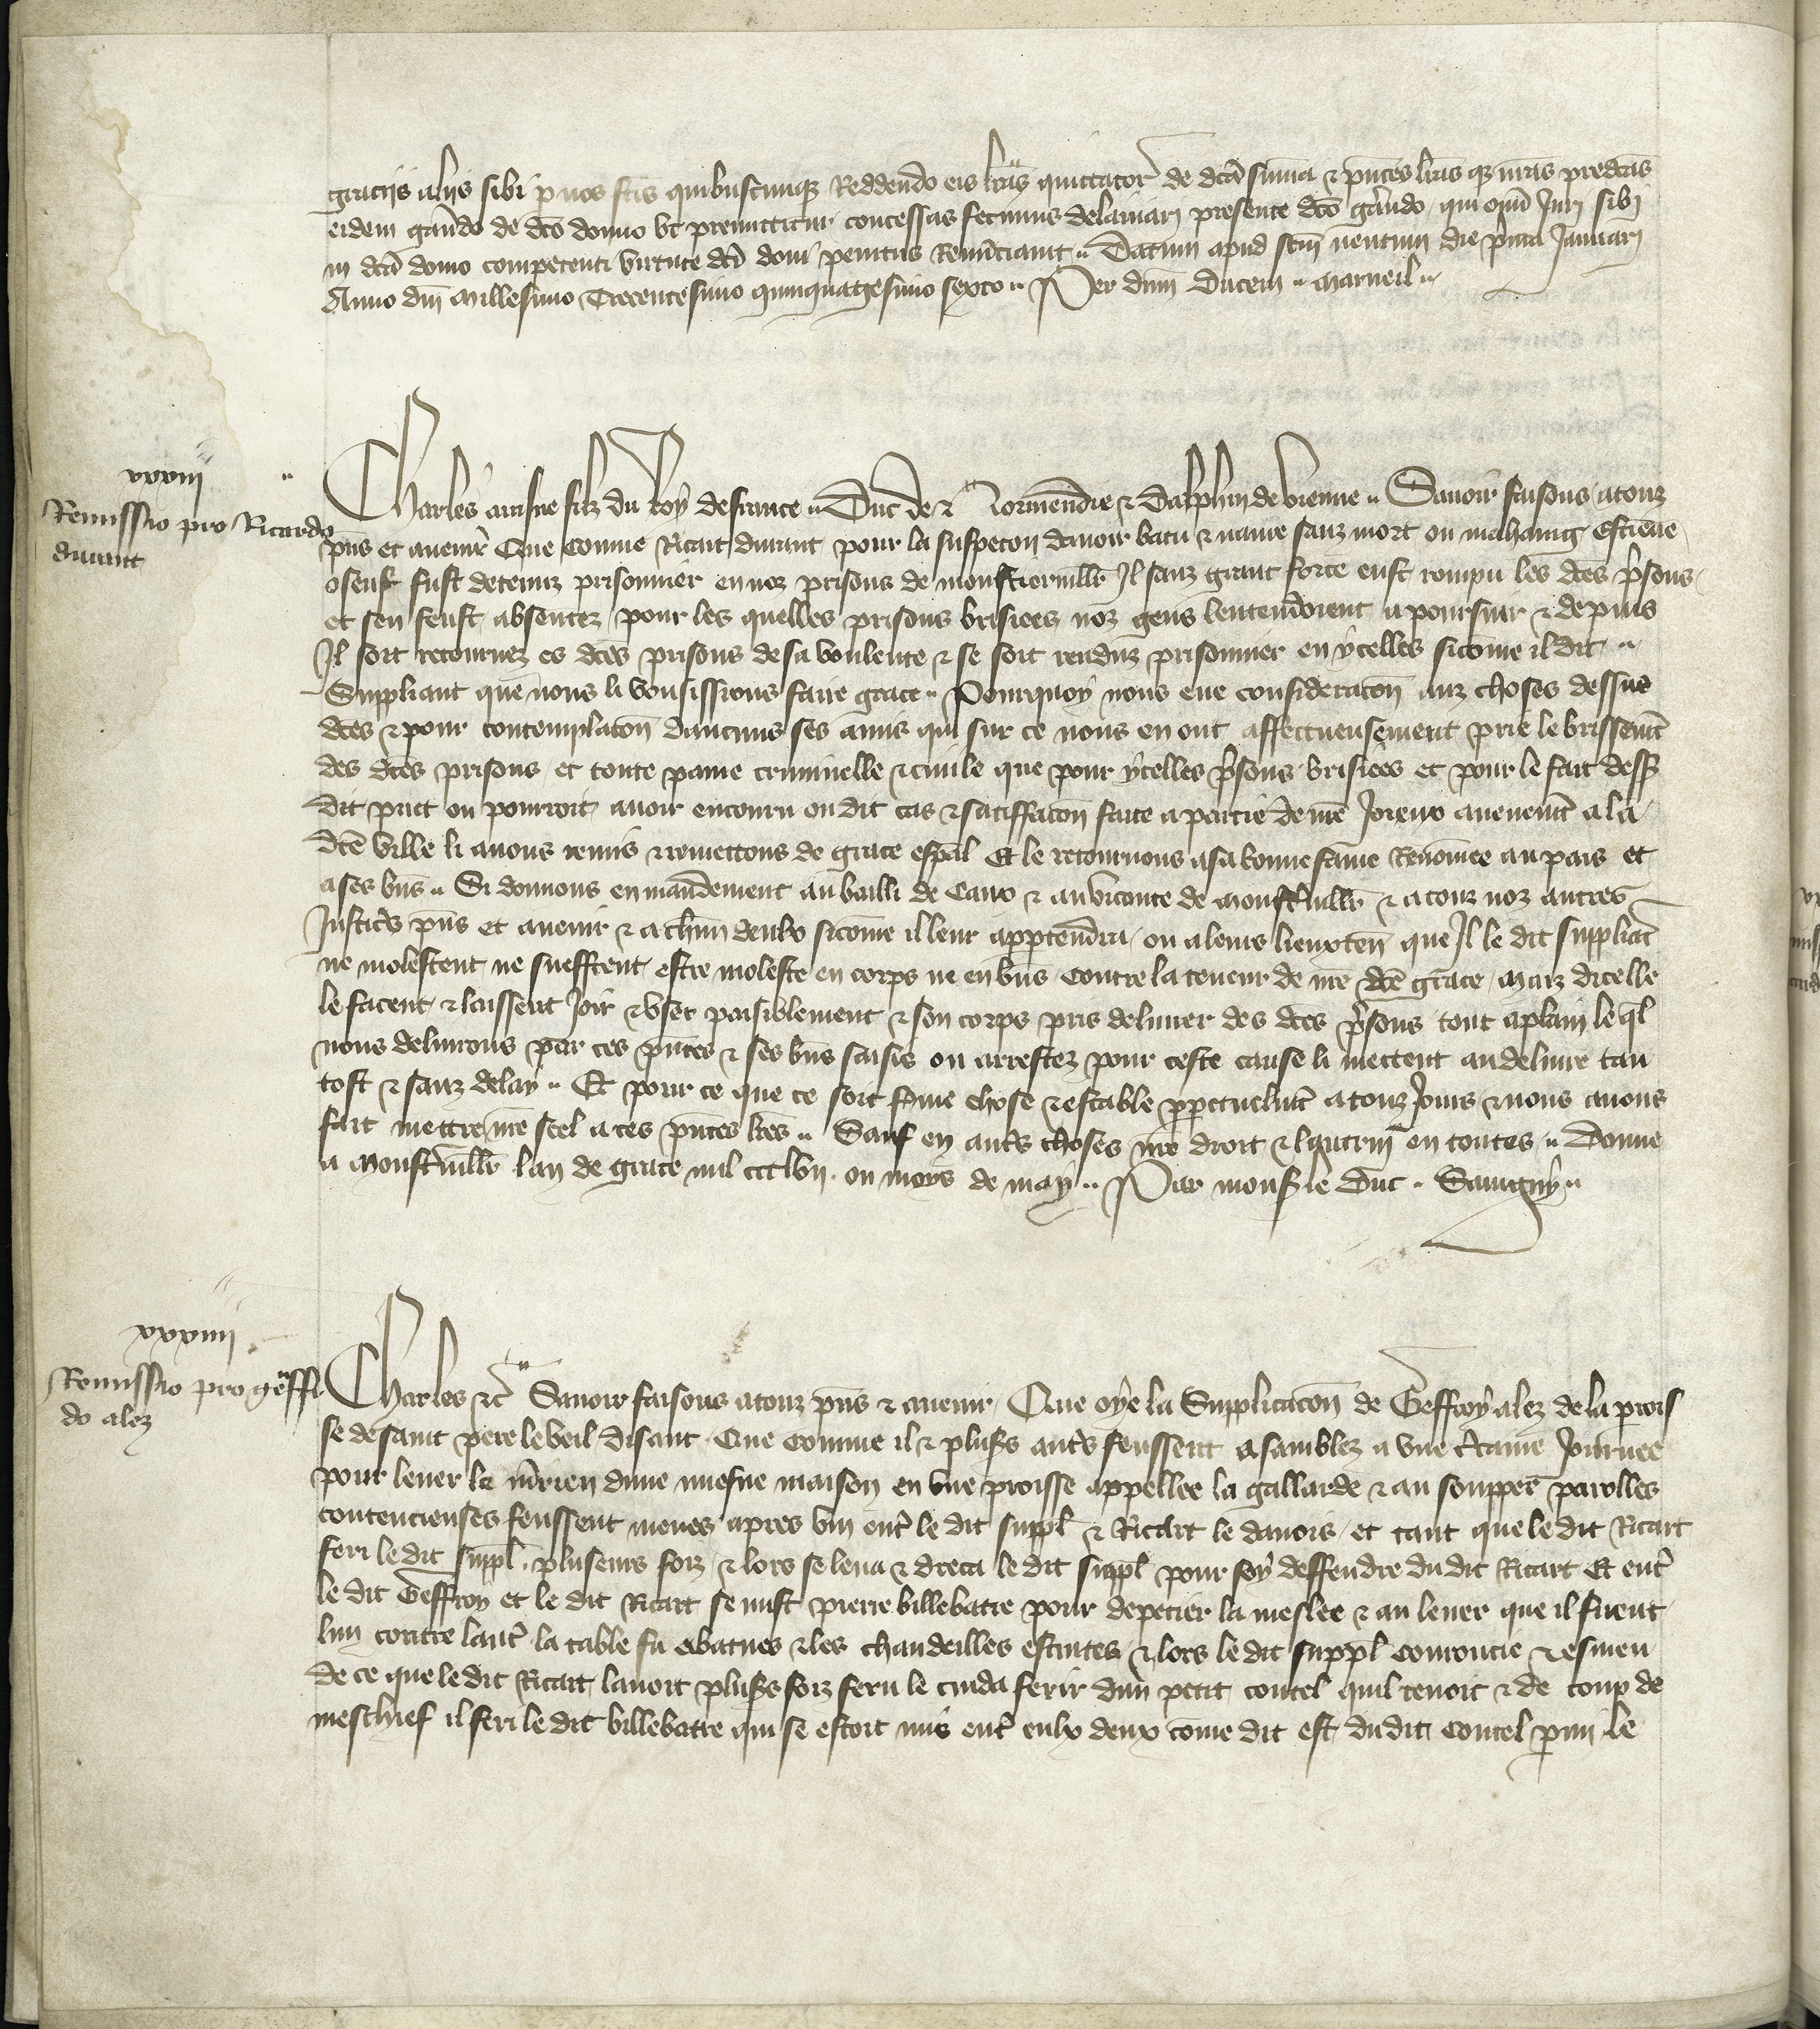 graciis aliis sibi p nos fcis quibuscunque Reddendo eis lras quittator de dca summa & pntes lras qz nras predcas
eidem gando de dco domo ut premittitur concessas fecimus delaniari presente dco gando qui omi Juri sibi
in dca domo competenti virtute dci doni penitus Renunciavit Datum apud scm die prima Januarii
Anno dni Millesimo Trecentesimo quinquagesimo sexto Per dnm Ducem marueil
xxxiii
Remissio pro Ricardo
durant
Charles ainsne filz du Roy de france Duc de Normendie & Dalphin de vienne Savoir faisons a touz
pns et avenir Que comme Ricart durant pour la suspecon davoir batu & navre sanz mort ou mahaing Estiene
fust detenuz prisonnier en noz prisons de monstiervill Il sanz grant force eust rompu les dces prisons
et sen feust absentez pour les quelles prisons brisiees noz gens lentendoient a poursuir & depuis
Il soit retournez es dces prisons de sa voulente & se soit renduz prisonnier en ycelles sicome il dit
Suppliant que nous li vousissions faire grace Pourquoy nous eue consideracon aux choses dessus
dces & pour contemplacon daucuns ses amis qui sur ce nous en ont affectueusement prie le brissemt
des dces prisons et toute paine criminelle & civile que pour ycelles prisons brisiees et pour le fait dess
dit puet ou pourroit avoir encouru ou dit cas & satiffacon faite a partie de nre Joieux avenemt a la
dce ville li avons remis & remettons de grace espal Et le retournons a sa bonne fame Renomee au pais et
a ses bns Si donnons en mandement au bailli de Caux & au viconte de monstrvill & a touz noz autres
Justics pns et avenir & a chun deulx sicome il leur appartendra ou a leurs lieuxten que Il le dit suppliat
ne molestent ne sueffrent estre moleste en corps ne en bns contre la teneur de nre dce grace Maiz dicelle
le facent & laissent Joir & user paisiblement & son corps pris delivrer des dces prisons tout a plain leql
nous delivrons par ces pntes & ses bns saisis ou arrestez pour ceste cause li mettent au delivre tan
tost & sanz delay Et pour ce que ce soit ferme chose & estable perpetuelmt a touz Jours & nous avons
fait mettre nre scel a ces pntes lres Sauf en auts choses nre droit & lautrui en toutes Donne
a Monstrvill lan de grace mil ccc lvii ou moys de may Par mons le Duc Savigny
xxxiiii
Remissio pro gauffr
do alez
Charles &c Savoir faisons a touz pns & avenir Que oye la Supplicacon de Geffroy alez de la prois
se de saint pere le veil disant Que comme il & pluss auts feussent asamblez a une certaine Journee
pour lever le mrien dune nuefve maison en une proisse appellee la gallarde & au soupper parolles
contencieuses feussent meues apres vin entr le dit suppl & Ricart le danois et tant que le dit Ricart
feri le dit suppl pluseurs foiz & lors se leva & dreca le dit suppl pour soy deffendre du dit Ricart Et entr
le dit Geffroy et le dit Ricart se mist pierre billebatre pour depecier la meslee & au lever que il firent
lun contre lautr la table fu abatues & les chandeilles estintes & lors le dit suppl couroucie & esmeu
de ce que le dit Ricart lavoit pluss foiz feru le cuida ferir dun petit coutel quil tenoit & de coup de
meschief il feri le dit billebatre qui se estoit mis entr eulx deux come dit est du dit coutel parmi le